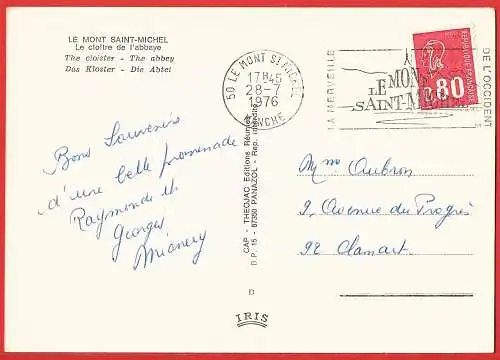 LE MONT SAINT-MICHEL
Le cloître de l'abbaye
The cloister - The abbey
Das Kloster - Die Abtei
50 LE MONT ST MICHEL
17H45
28-7
1976
MANCHE
LA MERVEILLE
LE MONT
SAINT-MICHEL
DE L'OCCIDENT
REPUBLIQUE FRANCAISE
0,80
Bons Souvenirs
d'une belle promenade
Raymonde et
Georges
CAP - THEOJAC Editions Réunies
B.P. 15 - 87350 PANAZOL - Rep. interdite
Mme Aubron
9, Avenue du Progrès
92 Clamart
D
IRIS